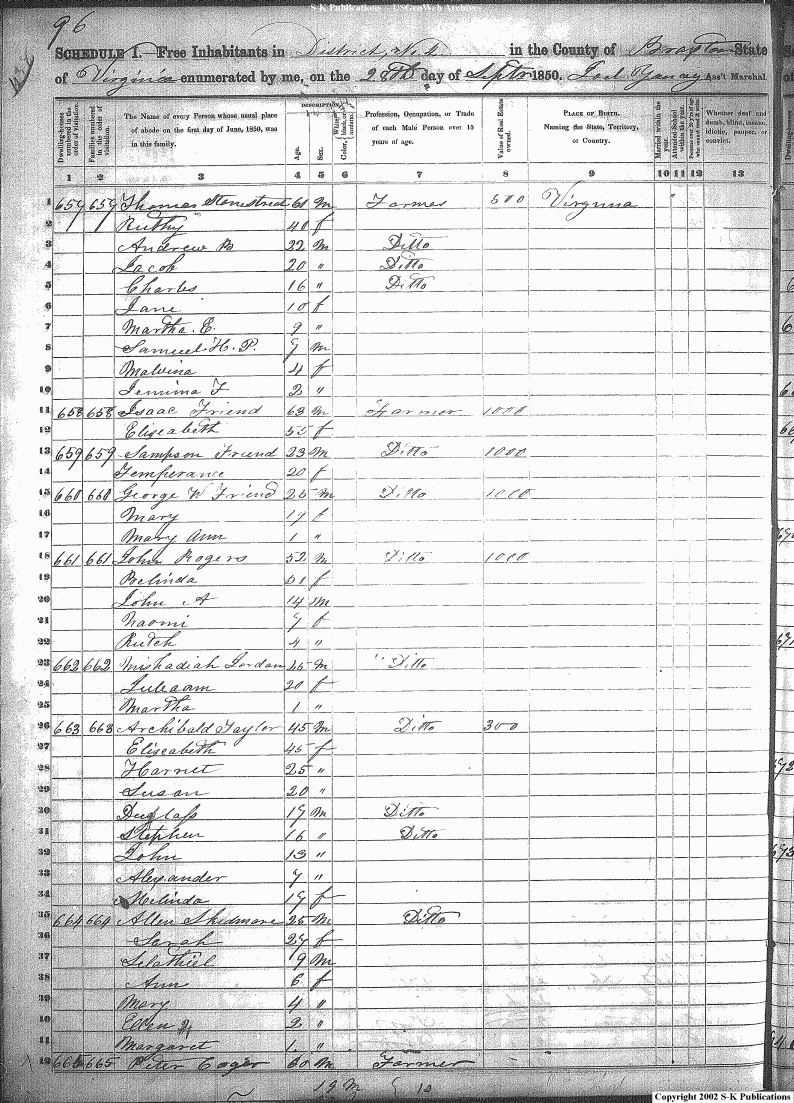 S-K Publications USGenWeb Archives
96
SCHEDULE I.—Free Inhabitants in District, No. in the County of Braxton State
of Virginia enumerated by me, on the 28th day of Septr 1850. Joel Yancey Ass't Marshal.
Dwelling-houses numbered in the order of visitation.
Families numbered in the order of visitation.
The Name of every Person whose usual place of abode on the first day of June, 1850, was in this family.
DESCRIPTION.
Age.
Sex.
Color, White, black, or mulatto.
Profession, Occupation, or Trade of each Male Person over 15 years of age.
Value of Real Estate owned.
PLACE OF BIRTH. Naming the State, Territory, or Country.
Married within the year.
Whether deaf and dumb, blind, insane, idiotic, pauper, or convict.
1 2 3 4 5 6 7 8 9 10 11 12 13
1 657 657 Thomas Stonestreet 61 M Farmer 500 Virginia
2 Ruthy 40 f
3 Andrew B 22 M Ditto
4 Jacob 20 " Ditto
5 Charles 16 " Ditto
6 Jane 10 f
7 Martha. E. 9 "
8 Samuel H. P. 7 M
9 Malvina 4 f
10 Jemima F 2 "
11 658 658 Isaac Friend 63 M Farmer 1000
12 Eliseabeth 55 f
13 659 659 Sampson Friend 23 M Ditto 1000
14 Temperance 20 f
15 660 660 George W Friend 25 M Ditto 1000
16 Mary 19 f
17 Mary Ann 1 "
18 661 661 John Rogers 52 M Ditto 1000
19 Belinda 51 f
20 John A 14 M
21 Naomi 7 f
22 Ruth 4 "
23 662 662 Jordan 25 M " Ditto
24 Juleaam 20 f
25 Martha 1 "
26 663 663 Archibald Taylor 45 M Ditto 300
27 Eliseabeth 45 f
28 Harriet 25 "
29 Susan 20 "
30 Duglass 19 M Ditto
31 Stephen 16 " Ditto
32 John 13 "
33 Alexander 7 "
34 Melinda 19 f
35 664 664 Allen Skidmore 25 M Ditto
36 Sarah 27 f
37 Selathiel 19 M
38 Ann 6 f
39 Mary 4 "
10 Ellen 2 "
11 Margaret 1 "
665 665 Peter Coger 60 M Farmer
19 M
Copyright 2002 S-K Publications